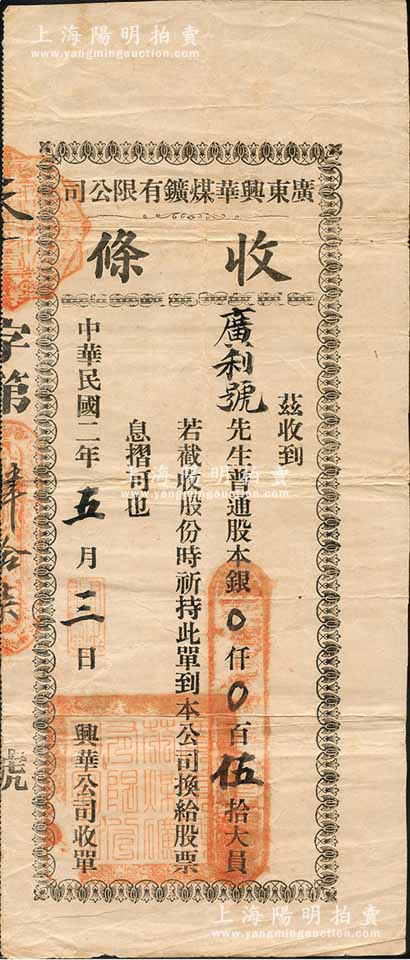 上海陽明拍賣
www.yangmingauction.com
廣東興華煤鑛有限公司
收條
茲收到
廣利號先生普通股本銀0仟0百伍拾大員
若截收股份時祈持此單到本公司換給股票
息摺可也
中華民國二年五月三日
興華公司收單
字第肆拾柒號
上海陽明拍賣
www.yangmingauction.com
上海陽明拍賣
www.yangmingauction.com